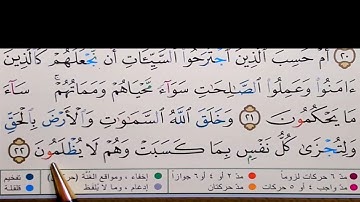 ٢٠ أَمْ حَسِبَ ٱلَّذِينَ ٱجْتَرَحُوا۟ ٱلسَّيِّـَٔاتِ أَن نَّجْعَلَهُمْ كَٱلَّذِينَ
ءَامَنُوا۟ وَعَمِلُوا۟ ٱلصَّٰلِحَٰتِ سَوَآءً مَّحْيَاهُمْ وَمَمَاتُهُمْ ۚ سَآءَ
مَا يَحْكُمُونَ ٢١ وَخَلَقَ ٱللَّهُ ٱلسَّمَٰوَٰتِ وَٱلْأَرْضَ بِٱلْحَقِّ
وَلِتُجْزَىٰ كُلُّ نَفْسٍۭ بِمَا كَسَبَتْ وَهُمْ لَا يُظْلَمُونَ ٢٢
مدّ ٦ حركات لزوماً مدّ ٢ أو ٤ أو ٦ جوازاً إخفاء، ومواقع الغنّة تفخيم
مدّ واجب ٤ أو ٥ حركات مدّ حركتان إدغام، وما لا يُلفظ قلقلة